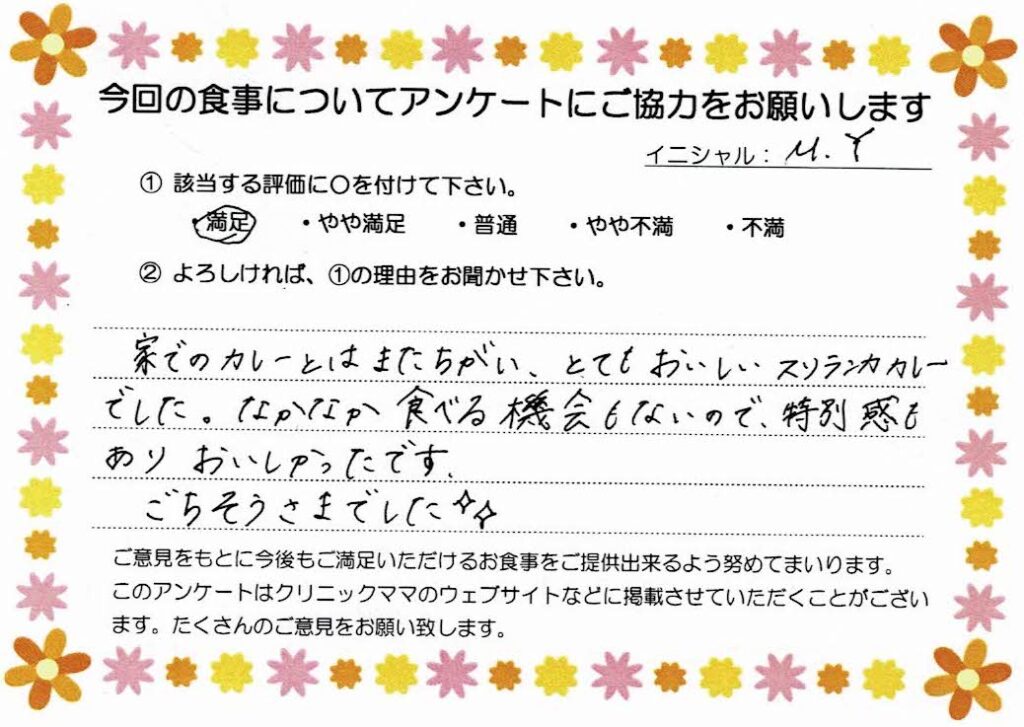 今回の食事についてアンケートにご協力をお願いします
イニシャル： M.Y
① 該当する評価に〇を付けて下さい。
・満足 ・やや満足 ・普通 ・やや不満 ・不満
② よろしければ、①の理由をお聞かせ下さい。
家でのカレーとはまたちがい、とてもおいしいスリランカカレー
でした。なかなか食べる機会もないので、特別感も
ありおいしかったです。
ごちそうさまでした✧✧
ご意見をもとに今後もご満足いただけるお食事をご提供出来るよう努めてまいります。
このアンケートはクリニックママのウェブサイトなどに掲載させていただくことがござい
ます。たくさんのご意見をお願い致します。